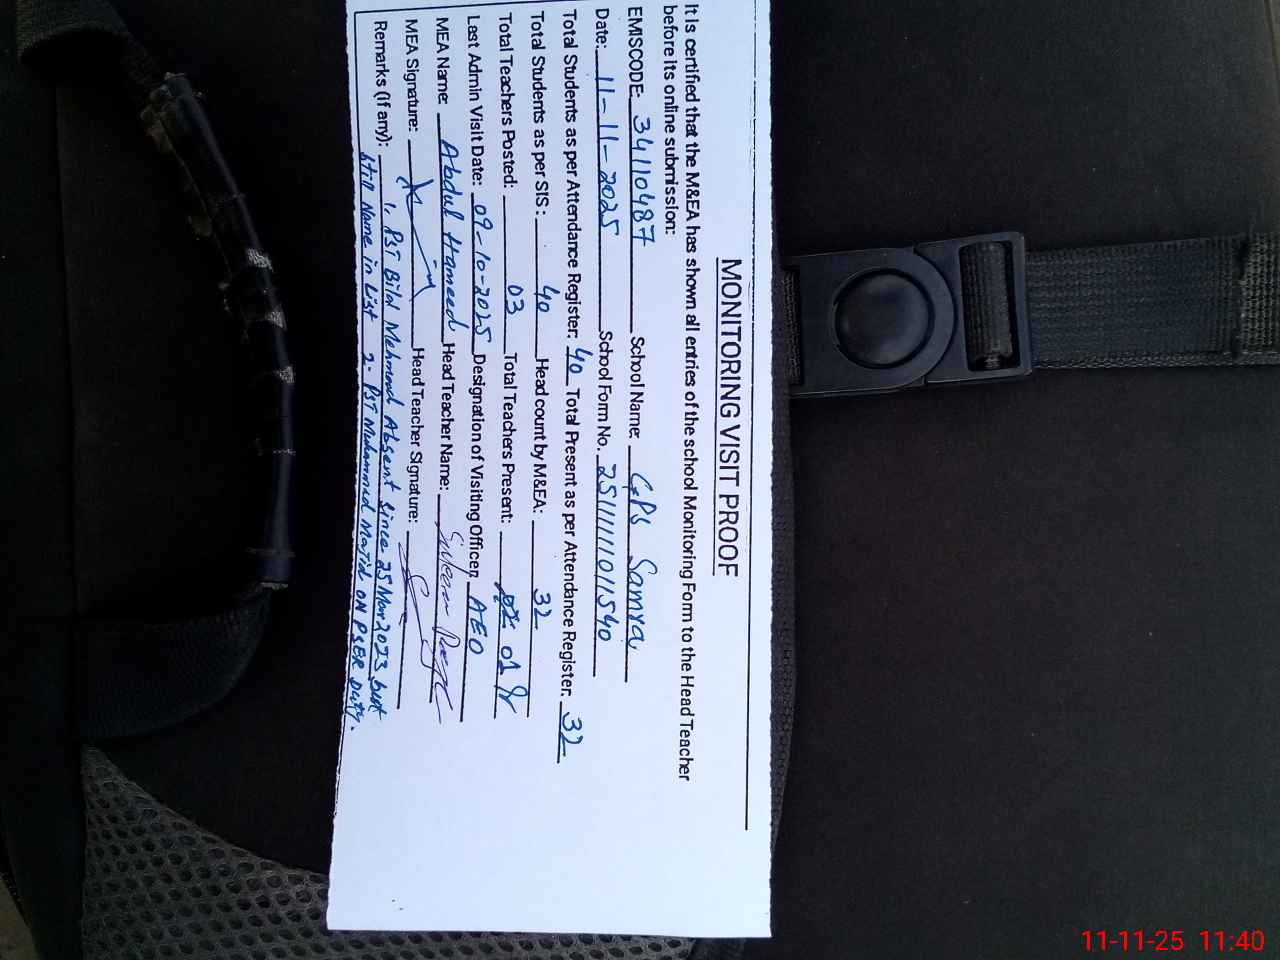 MONITORING VISIT PROOF
It is certified that the M&EA has shown all entries of the school Monitoring Form to the Head Teacher
before its online submission:
EMISCODE: 34110487 School Name: GPS Samra
Date: 11-11-2025 School Form No. 2511111011540
Total Students as per Attendance Register: 40 Total Present as per Attendance Register: 32
Total Students as per SIS: 40 Head count by M&EA: 32
Total Teachers Posted: 03 Total Teachers Present: 01
Last Admin Visit Date: 09-10-2025 Designation of Visiting Officer: AEO
MEA Name: Abdul Hameed Head Teacher Name:
MEA Signature: Head Teacher Signature:
Remarks (if any): 1, PST Bilal Mehmood Absent since 25 Mar 2023, but
still Name in List 2- PST Muhammad Majid ON PSER Duty.
11-11-25 11:40